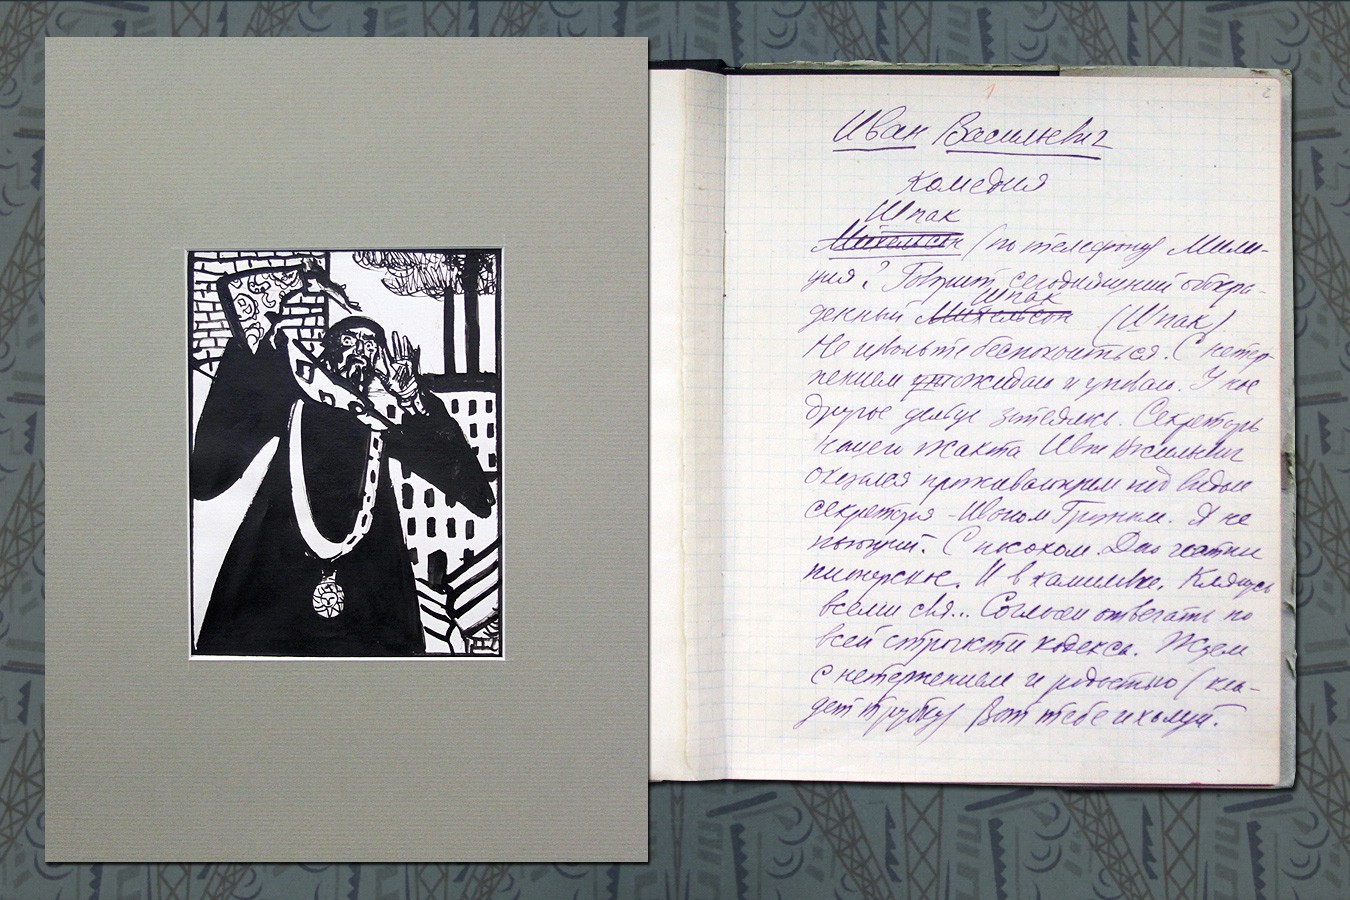 2
Иван Васильевич
комедия
Шпак
Михельсон (по телефону) Мили-
ция? Говорит сегодняшний обкра-
Шпак
денный Михельсон (Шпак)
Не извольте беспокоиться. С нетер-
пением ожидаю и уповаю. У нас
другое дельце затеялось. Секретарь
нашего Жакта Иван Васильевич
оказался проживающим под видом
секретаря - Иваном Грозным. Я не
пьющий. С посохом. Даю честное
пионерское. И в канилавке. Клянусь
всеми свя... Согласен отвечать по
всей строгости кодекса. Ждем
с нетерпением и радостью (кла-
дет трубку) Вот тебе и холуй.